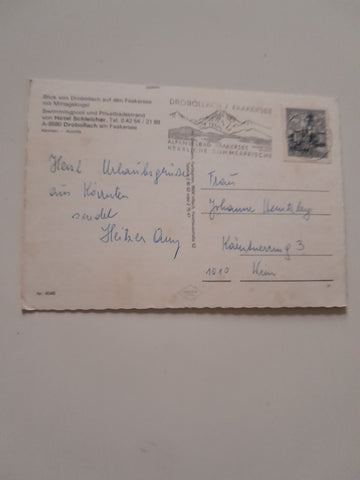 Blick von Drobollach auf den Faakersee
mit Mittagskogel
Swimmingpool und Privatbadestrand
von Hotel Schleicher, Tel. 0 42 54 / 21 88
A-9580 Drobollach am Faakersee
Kärnten - Austria
DROBOLLACH / FAAKERSEE
ALPENSEEBAD FAAKERSEE
HERRLICHE SOMMERFRISCHE
Herzl Urlaubsgrüsse
aus Kärnten
sendet
Frau
Johanna
Kärntnerring 3
1010 Wien
Nr. 4045